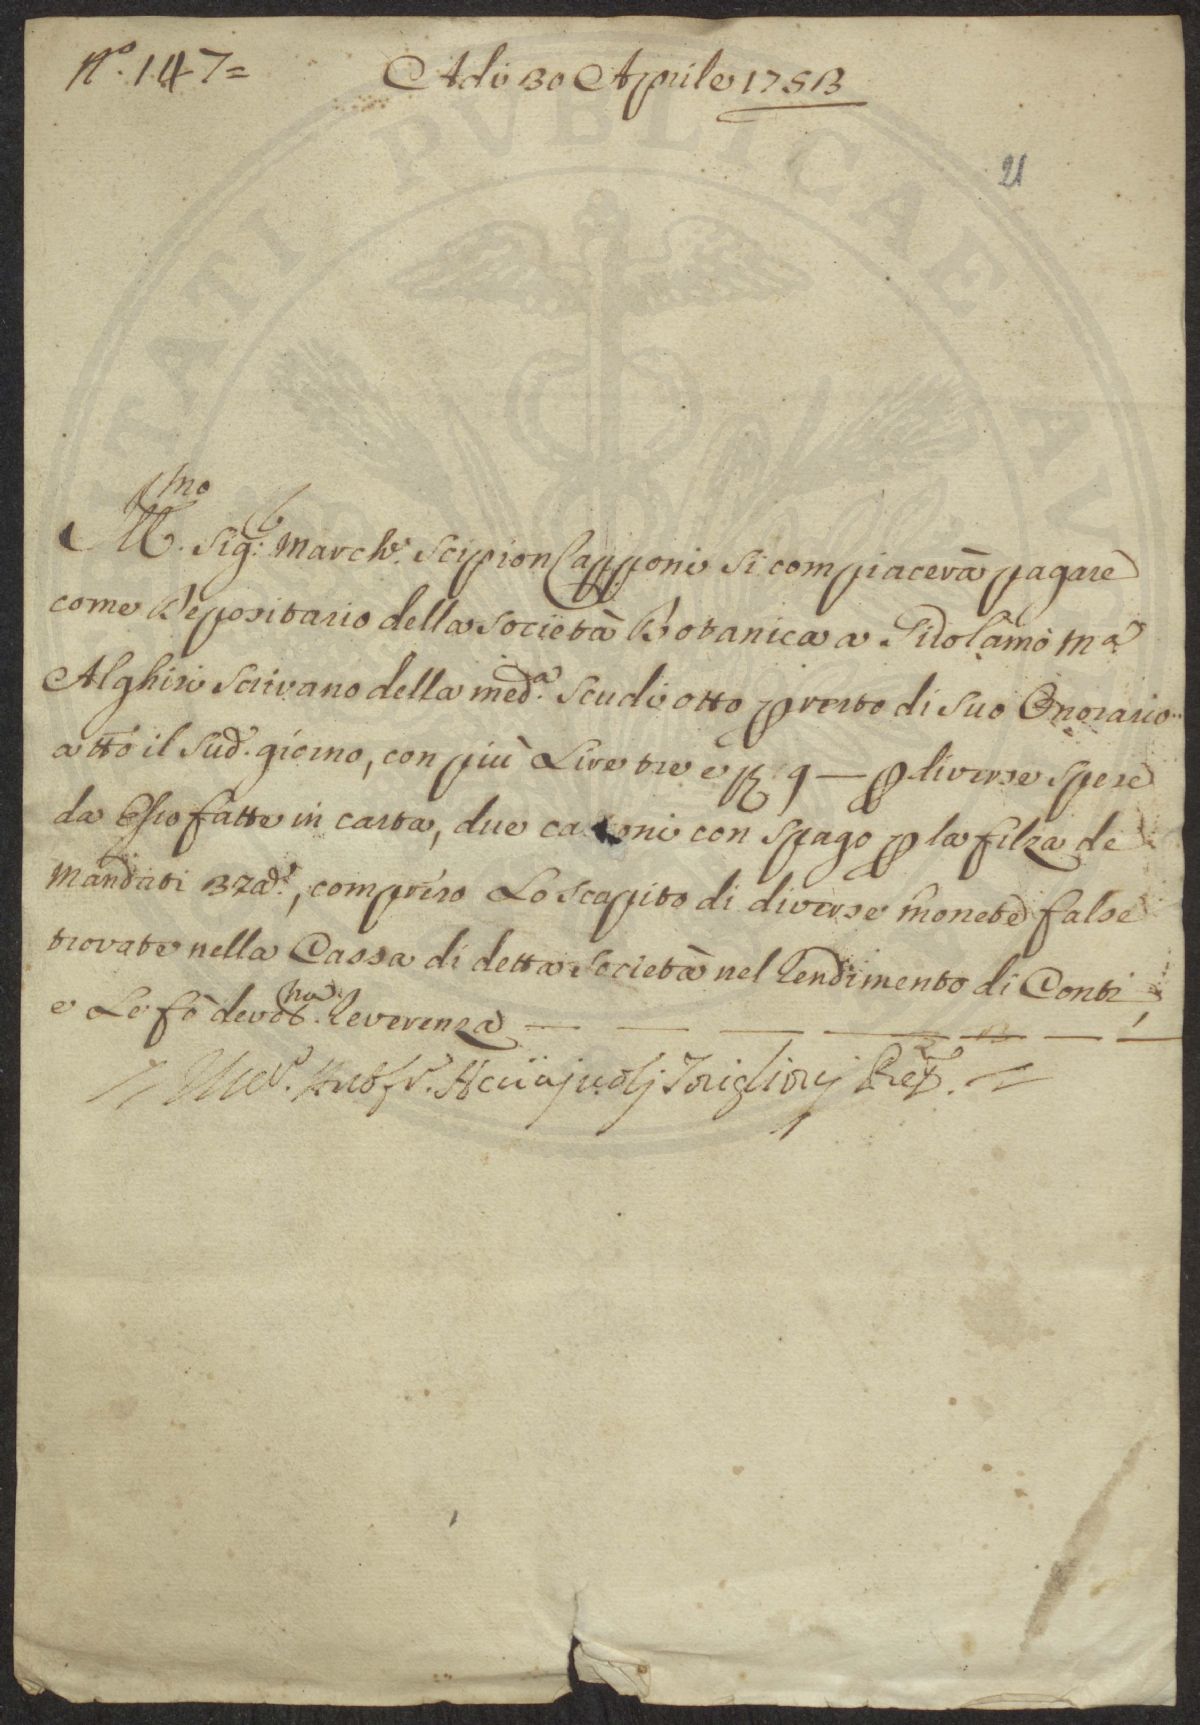 N.º 147=
Adi 30 Aprile 1753
21
Ill.mo Sig: March.e Scipion Capponi si compiacerà pagare
come Depositario della Società Botanica a Girolamo M.a
Alghisi Scrivano della med.a scudi otto p resto di suo Onorario
a tt.o il sud. giorno, con più Lire tre e 9 — p diverse spese
da Esso fatte in carta, due cartoni con spago p la filza de
Mandati, compriso Lo scapito di diverse monete false
trovate nella Cassa di detta Società nel Rendimento di Conti
e Le fò devot.ma Reverenza